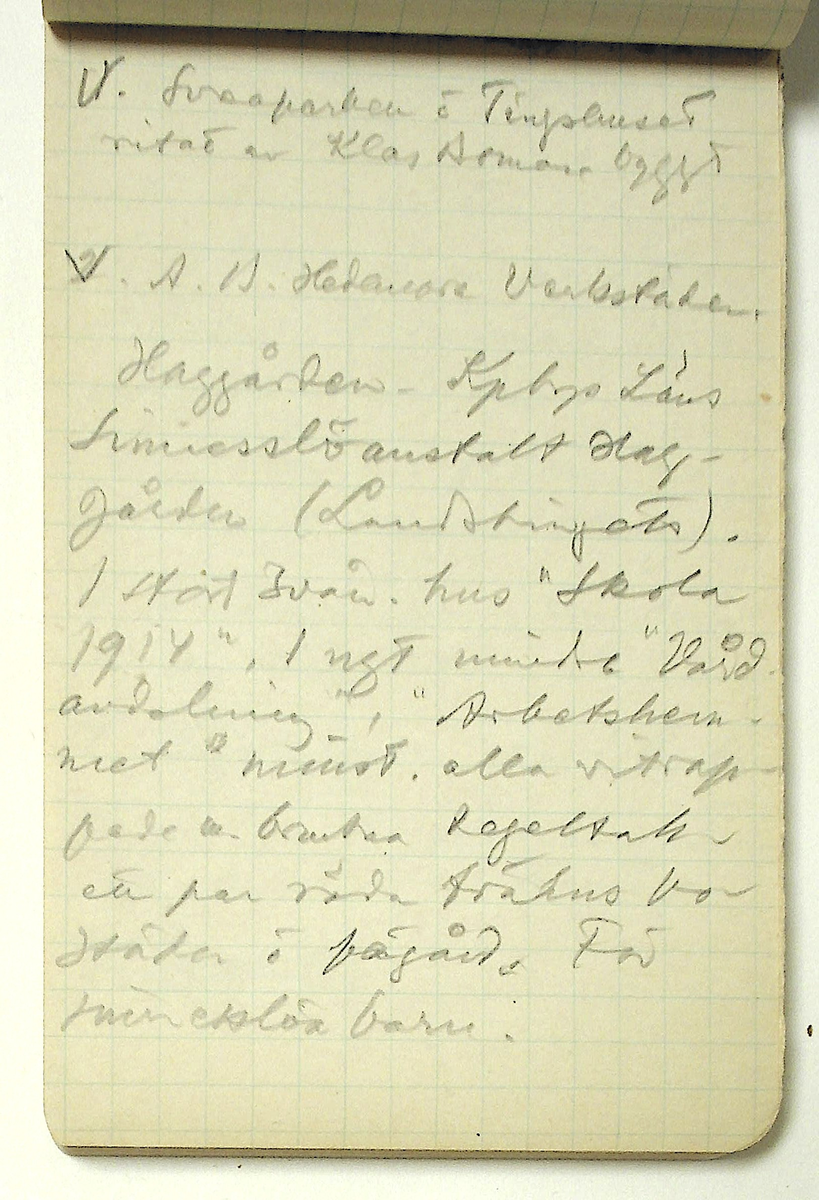 V. Sveaparken ö Tingshuset
ritat av Klas Boman byggt
V. A. B. Hedemora Verkstäder.
Haggården - Kpbgs Läns
Sinnesslöanstalt Hag-
gården (Landstingets).
1 stört 3vån. hus "Skola
1914", 1 ngt mindre "Vård-
avdelning", "Arbetshem-
met" minst. alla vitrap-
pade m brutna tegeltak
ett par röda trähus bo-
städer ö fägård. För
sinnesslöa barn.